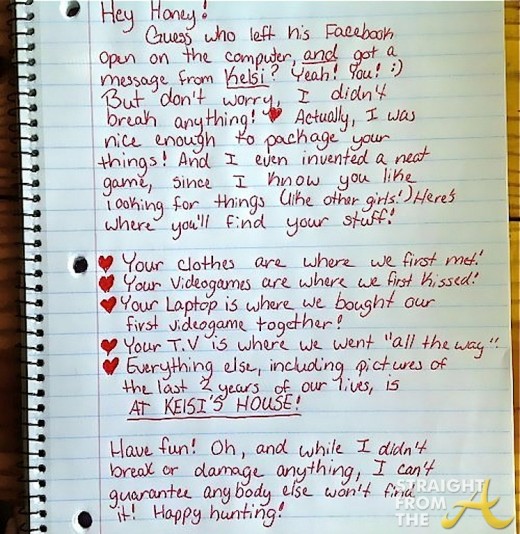 Hey Honey!
Guess who left his Facebook
open on the computer, and got a
message from Kelsi? Yeah! You! :)
But don't worry, I didn't
break anything! ♥ Actually, I was
nice enough to package your
things! And I even invented a neat
game, since I know you like
looking for things (like other girls!) Here's
where you'll find your stuff!
♥ Your clothes are where we first met!
♥ Your Videogames are where we first kissed!
♥ Your Laptop is where we bought our
first videogame together!
♥ Your T.V is where we went "all the way"!
♥ Everything else, including pictures of
the last 2 years of our lives, is
AT KElSI'S HOUSE!
Have fun! Oh, and while I didn't
break or damage anything, I can't
guarantee anybody else won't find
it! Happy hunting!
STRAIGHT
FROM
THE A